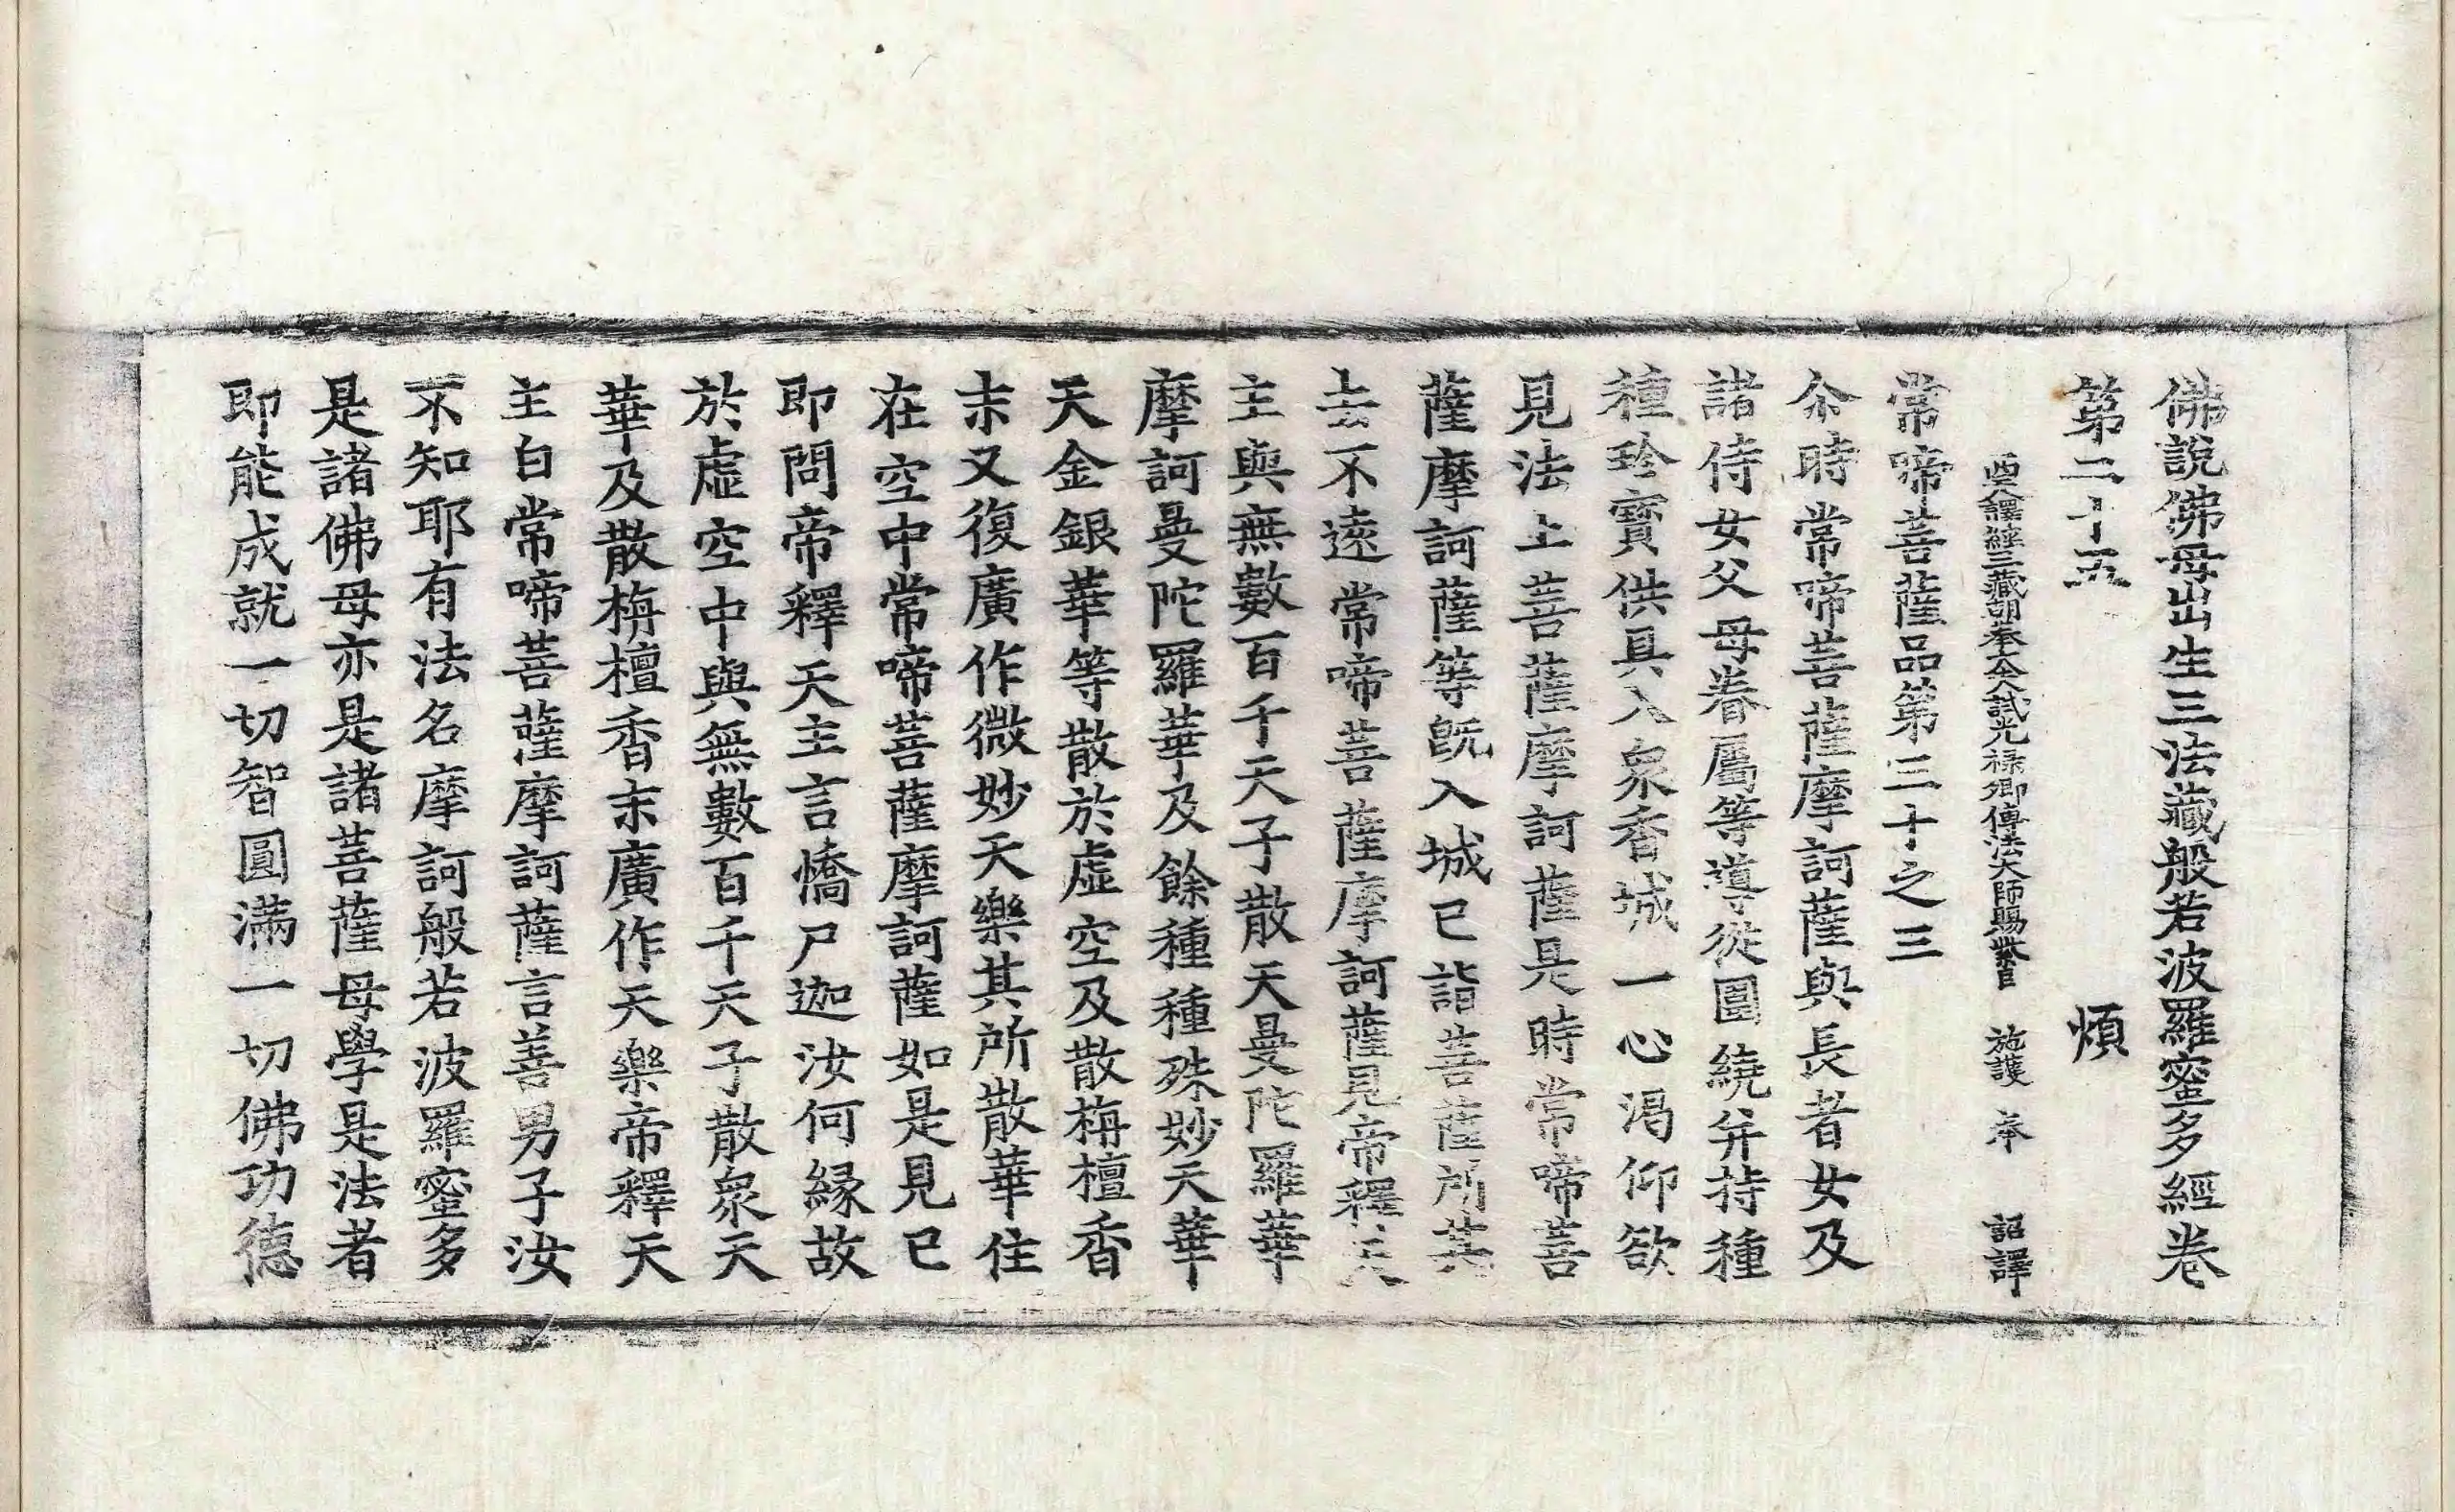 佛說佛母出生三法藏般若波羅蜜多經卷
第二十五　煩
西天譯經三藏朝奉大夫試光祿卿傳法大師賜紫臣　施護　奉　詔譯
常啼菩薩品第三十之三
尒時常啼菩薩摩訶薩與長者女及
諸侍女父母眷屬等導從圍繞并持種
種珍寶供具入衆香城一心渴仰欲
見法上菩薩摩訶薩是時常啼菩
薩摩訶薩等旣入城已詣菩薩所其
去不遠常啼菩薩摩訶薩見帝釋天
主與無數百千天子散天曼陀羅華
摩訶曼陀羅華及餘種種殊妙天華
天金銀華等散於虛空及散栴檀香
末又復廣作微妙天樂其所散華住
在空中常啼菩薩摩訶薩如是見已
即問帝釋天主言憍尸迦汝何緣故
於虛空中與無數百千天子散衆天
華及散栴檀香末廣作天樂帝釋天
主白常啼菩薩摩訶薩言善男子汝
不知耶有法名摩訶般若波羅蜜多
是諸佛母亦是諸菩薩母學是法者
即能成就一切智圓滿一切佛功德